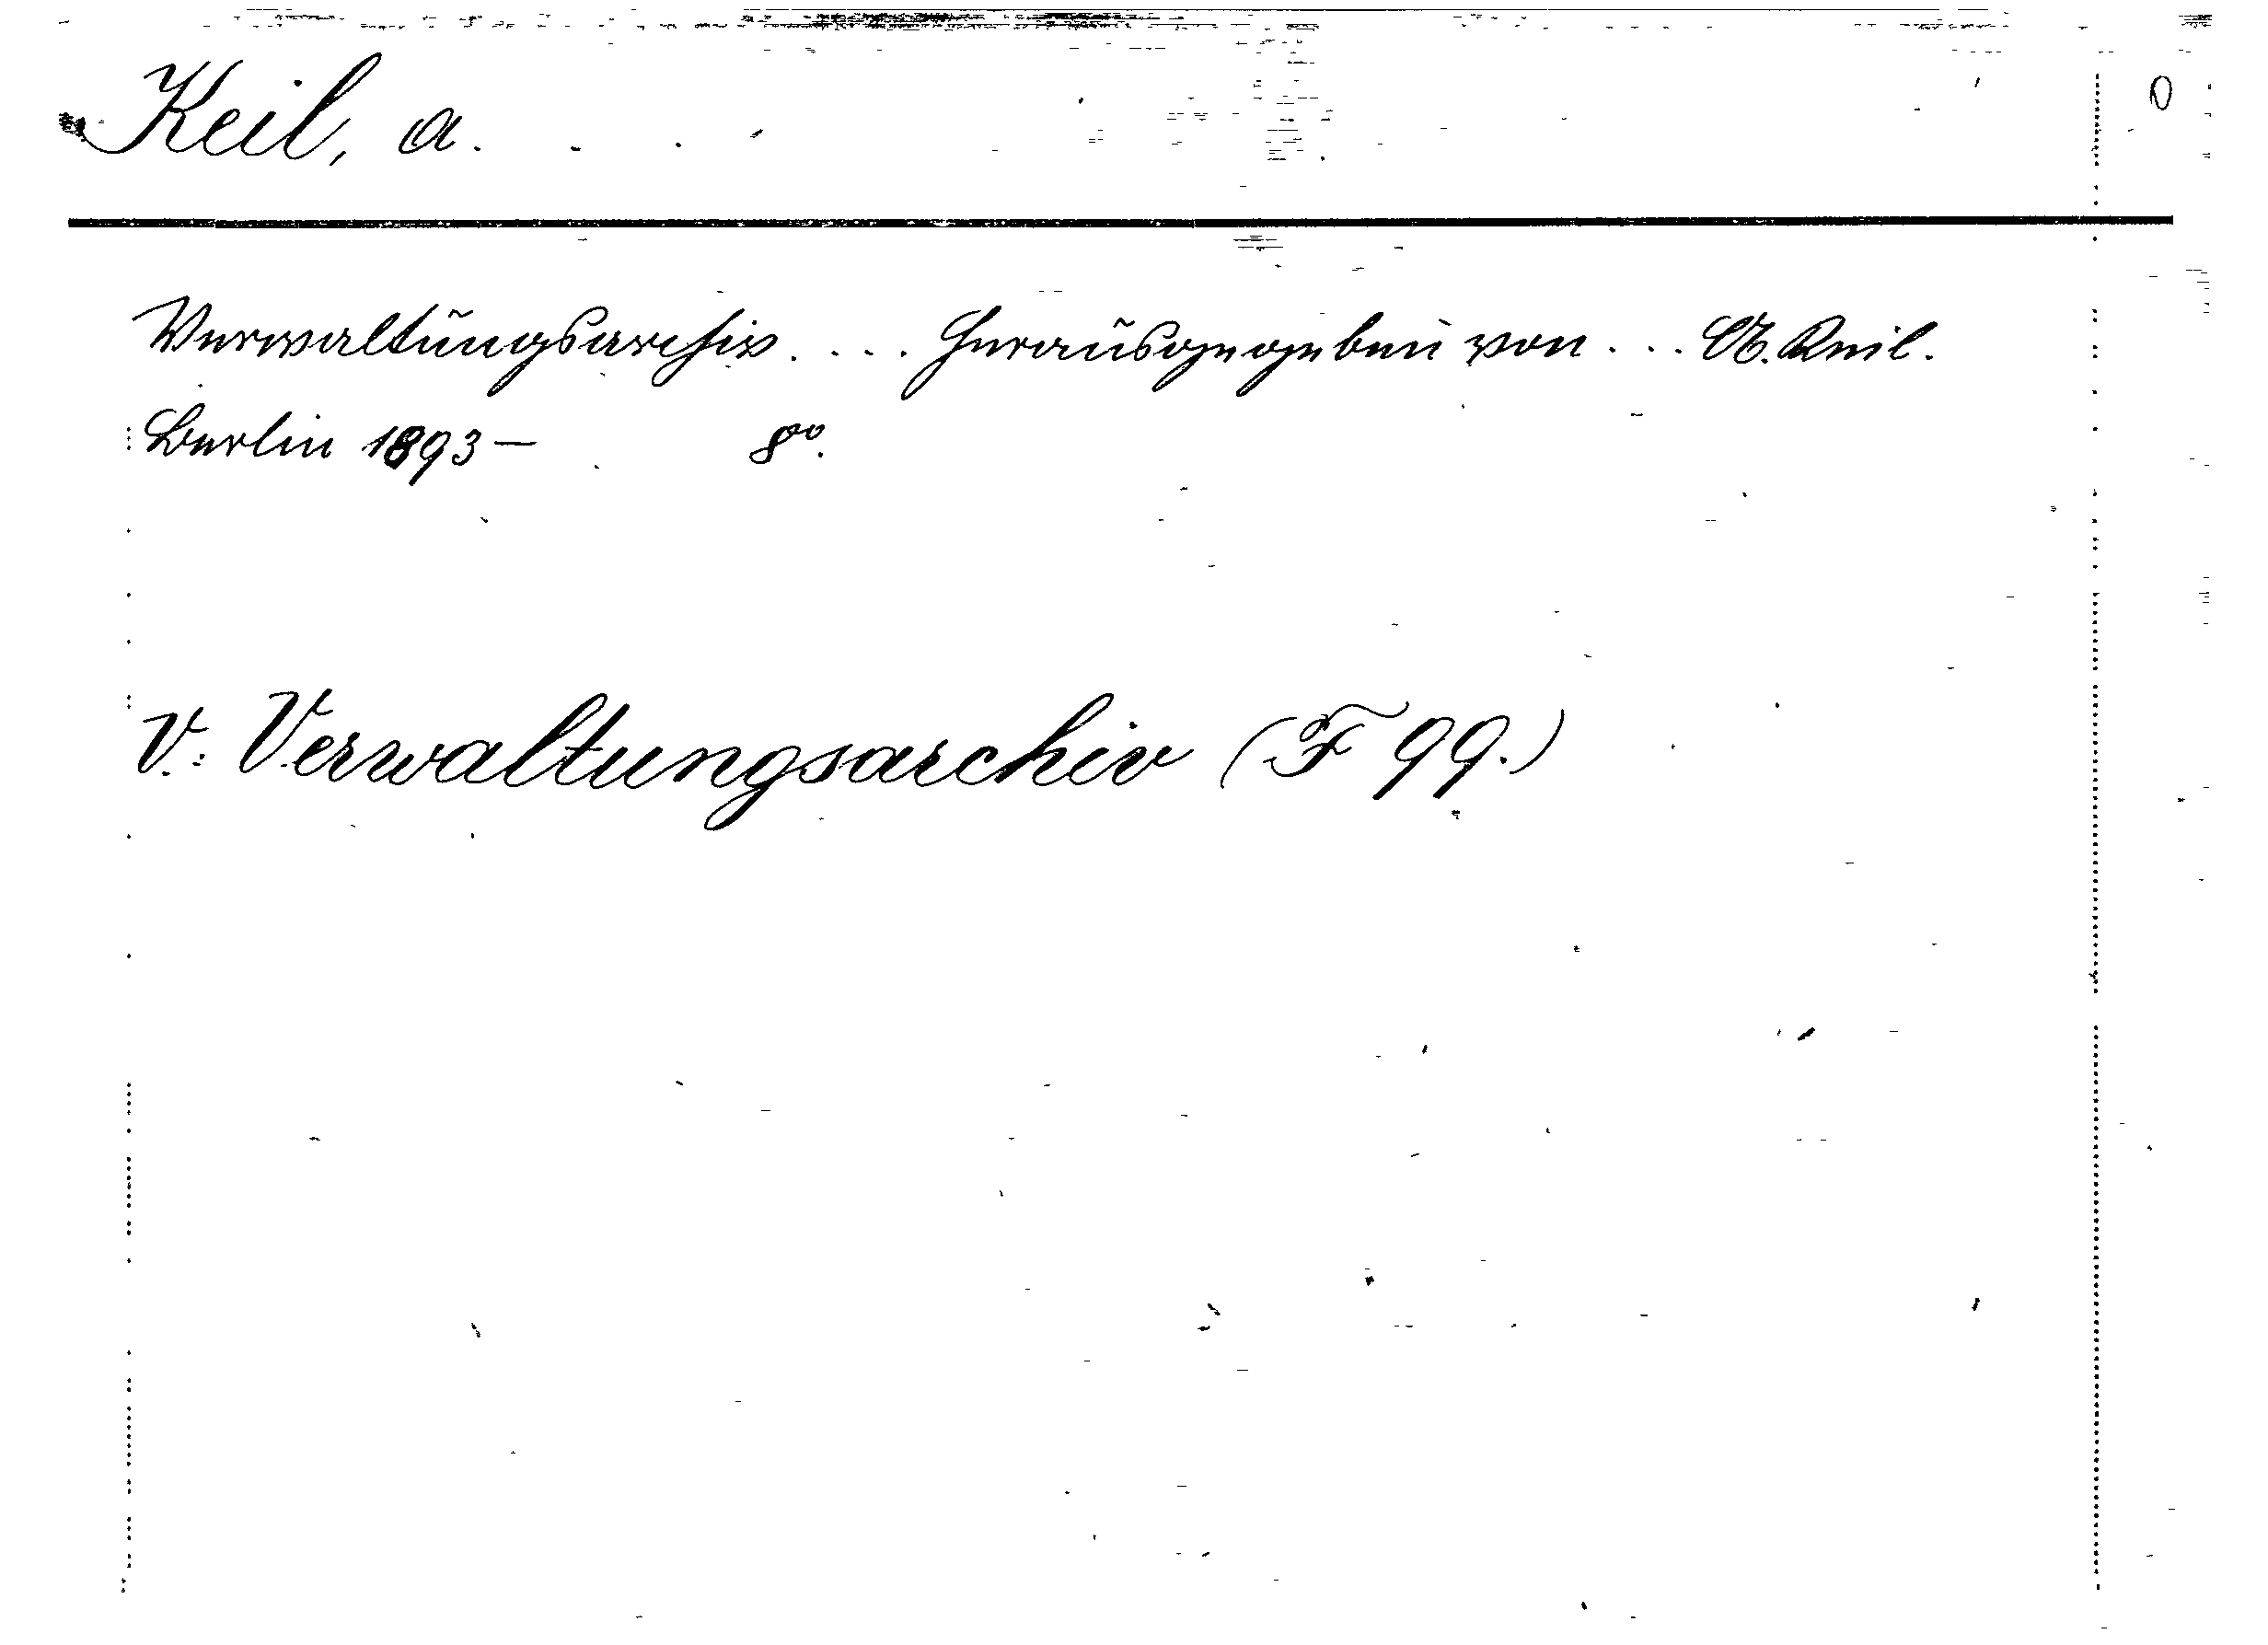 Keil, A.
0
Verwaltungsarchiv. ... Herausgegeben von ... A. Keil.
Berlin 1893 — 8vo.
V.: Verwaltungsarchiv (F 99.)